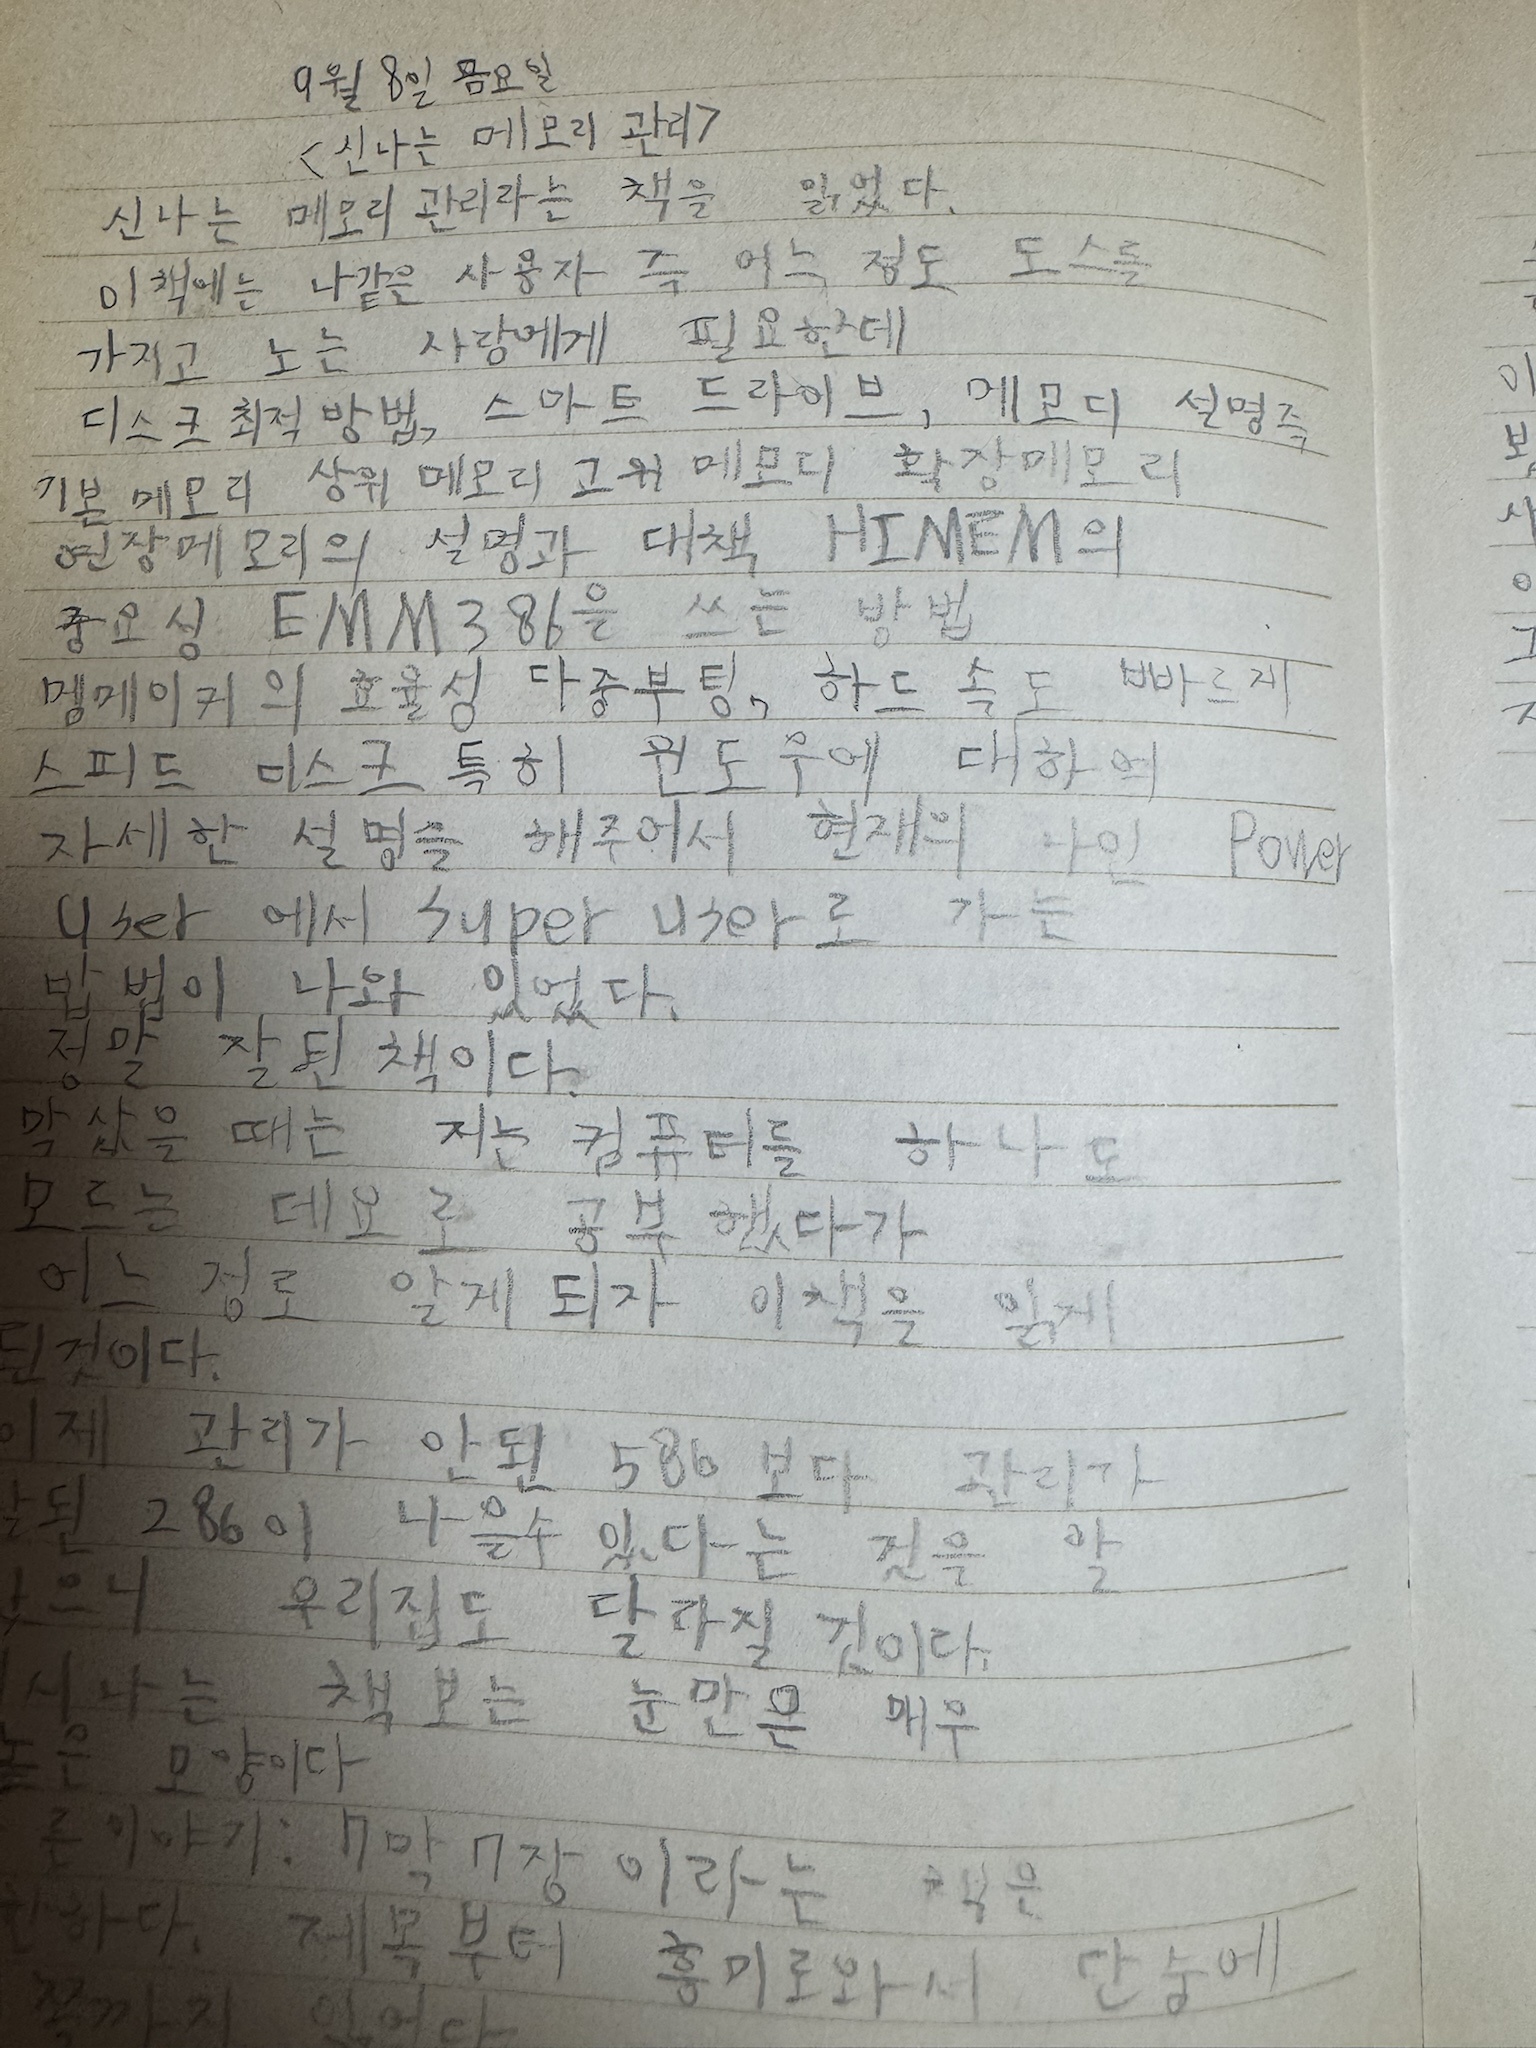 9월 8일 몸요일
<신나는 메모리 관리>
신나는 메모리 관리라는 책을 읽었다.
이책에는 나같은 사용자 즉 어느 정도 도스를
가지고 노는 사람에게 필요한데
디스크 최적 방법, 스마트 드라이브, 메모리 설명즉
기본 메모리 상위 메모리 고위 메모리 확장메모리
연장메모리의 설명과 대책 HIMEM의
중요성 EMM386을 쓰는 방법
멤메이커의 효율성 다중부팅, 하드 속도 빠르게
스피드 디스크 특히 윈도우에 대하여
자세한 설명을 해주어서 현재의 나인 Power
user 에서 super user로 가는
방법이 나와 있었다.
정말 잘된 책이다.
막샀을 때는 저는 컴퓨터를 하나도
모르는 데요로 공부 했다가
어느 정도 알게 되자 이책을 읽게
된것이다.
이제 관리가 안된 586 보다 관리가
잘된 286이 나을수 있다는 것을 알
았으니 우리집도 달라질 것이다.
나는 책 보는 눈만은 매우
높은 모양이다
이야기: 7막 7장 이라는 책은
하다. 제목부터 흥미로와서 단숨에
쪽까지 읽었다